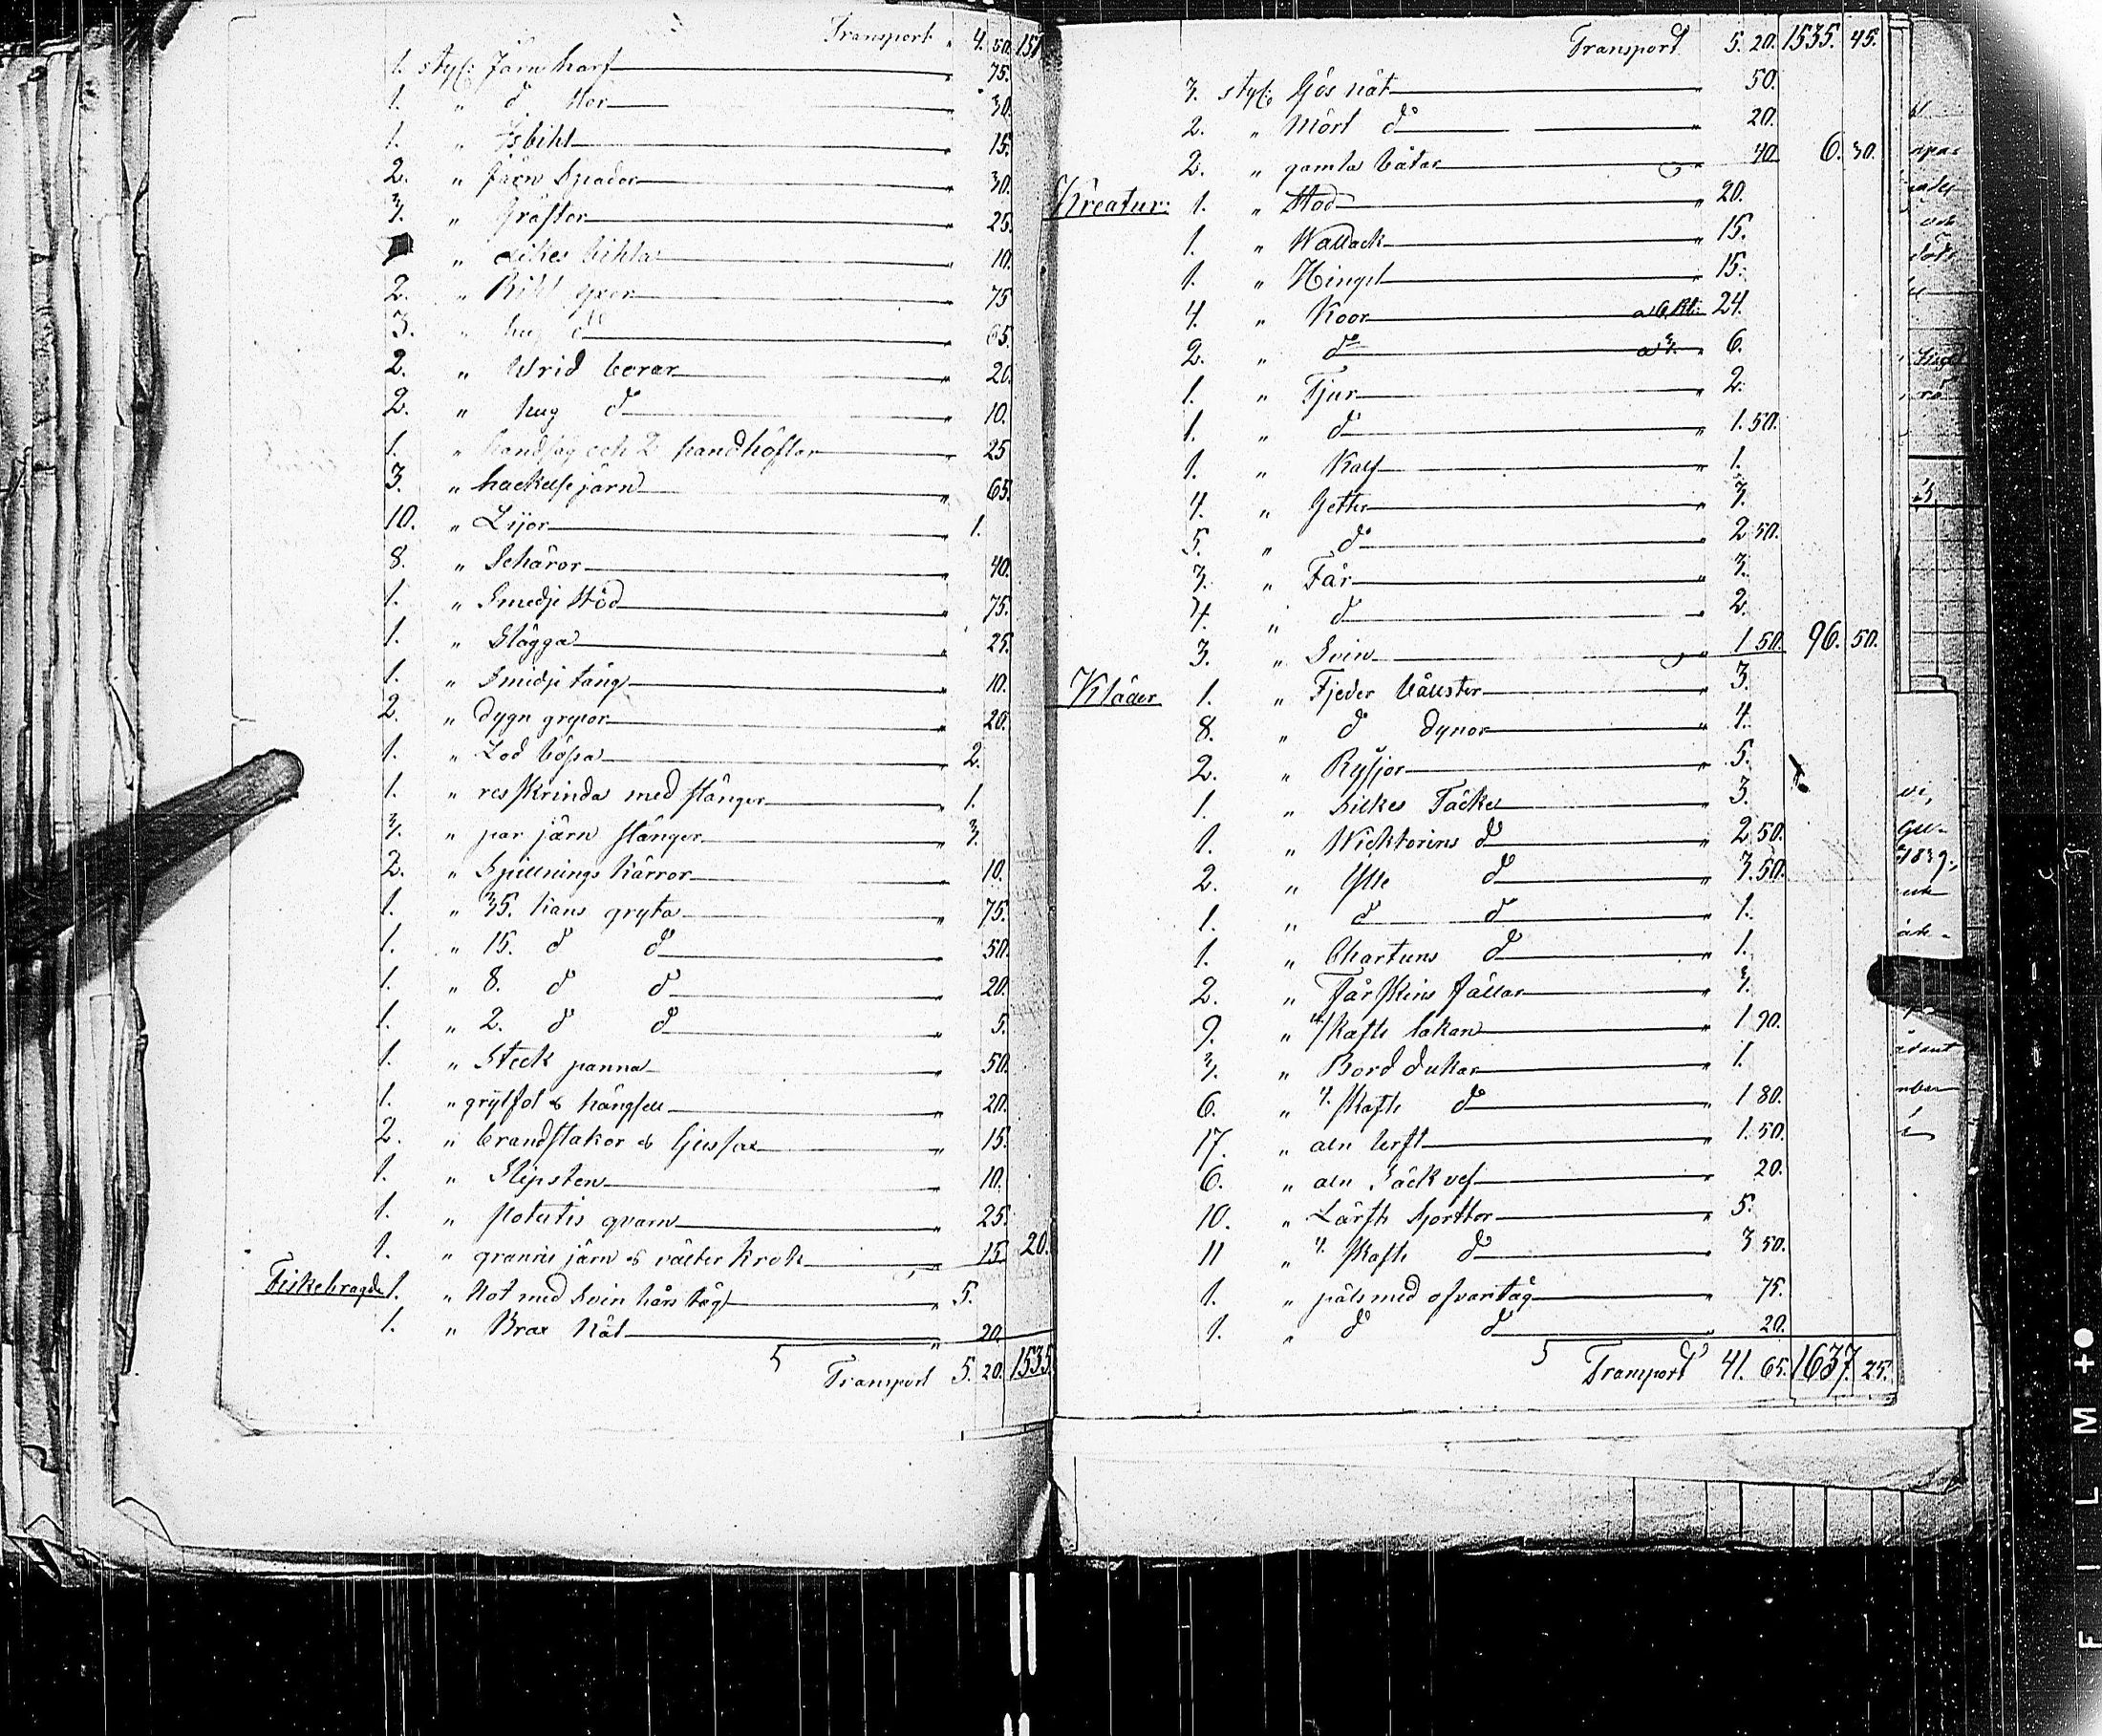 Transport " 4. 50. 151
1. styc: Järn harf " 75.
1. " do Stor " 30.
1. " Isbihl " 15.
2. " Järn Spador " 30.
3. " Gräftor " 25.
" Likes bihla " 10.
2. " Bihl yxor " 75
3. " hug do " 65.
2. " Wrid borar " 20.
2. " hug do " 10.
1. " handsåg och 2 handhöflar " 25
3. " hackelse järn " 65.
10. " Lijor " 1.
8. " Schäror " 40.
1. " Smedje Stöd " 75.
1. " Slägga " 25.
1. " Smidje tång " 10.
2. " dygn grepor " 20.
1. " Lod bössa " 2.
1. " res skrinda med stänger " 1.
3. " par järn stänger " 3.
2. " Spillnings kärror " 10.
1. " 35. kans gryta " 75.
1. " 15. do do " 50.
1. " 8. do do " 20.
1. " 2. do do " 5.
1. " Steck panna " 50.
1. " grytfot & hängsell " 20.
2. " brandstakor & ljussax " 15.
1. " Slipsten " 10.
1. " Potatis qvarn " 25.
1. " granris järn & välter krok " 15 20.
Fiskebragde 1. " Not med Svin hårs tåg " 5.
1. " Brax Nät " 20.
Transport 5. 20. 1535.
Transport 5. 20. 1535. 45.
3. styc: Gös nät " 50.
2. " Mört do " 20.
2. " gamla båtar " 40 6. 30.
Kreatur: 1. " Stod " 20.
1. " Wallack " 15.
1. " Hingst " 15.
4. " Koor a 6 Rl: 24.
2. " do a 3. " 6.
1. " Tjur " 2.
1. " do " 1. 50.
1. " Kalf " 1.
4. " Getter " 3.
5. " do " 2 50.
3. " Får " 3.
4. " do " 2.
3. " Svin " 1 50. 96. 50.
Kläder 1. " Fjeder bållster " 3.
8. " do dynor " 4.
2. " Rysjor " 5.
1. " Silkes Täcke " 3.
1. " Wicktorins do " 2 50.
2. " Ylle do " 3. 50.
1. " do do " 1.
1. " Chartuns do " 1.
2. " Fårskins fällar " 3.
9. " 4. skafts lakan " 1 90.
3. " Bord dukar " 1.
6. " 4. skafts do " 1 80.
17. " aln lerft " 1. 50.
6. " aln Säck vef " 20.
10. " Lärfts Sjorttor " 5.
11 " 4. skafts do " 3 50.
1. " päls med ofvartåg " 75.
1. " do do " 20.
Transport 41. 65. 1637. 25.